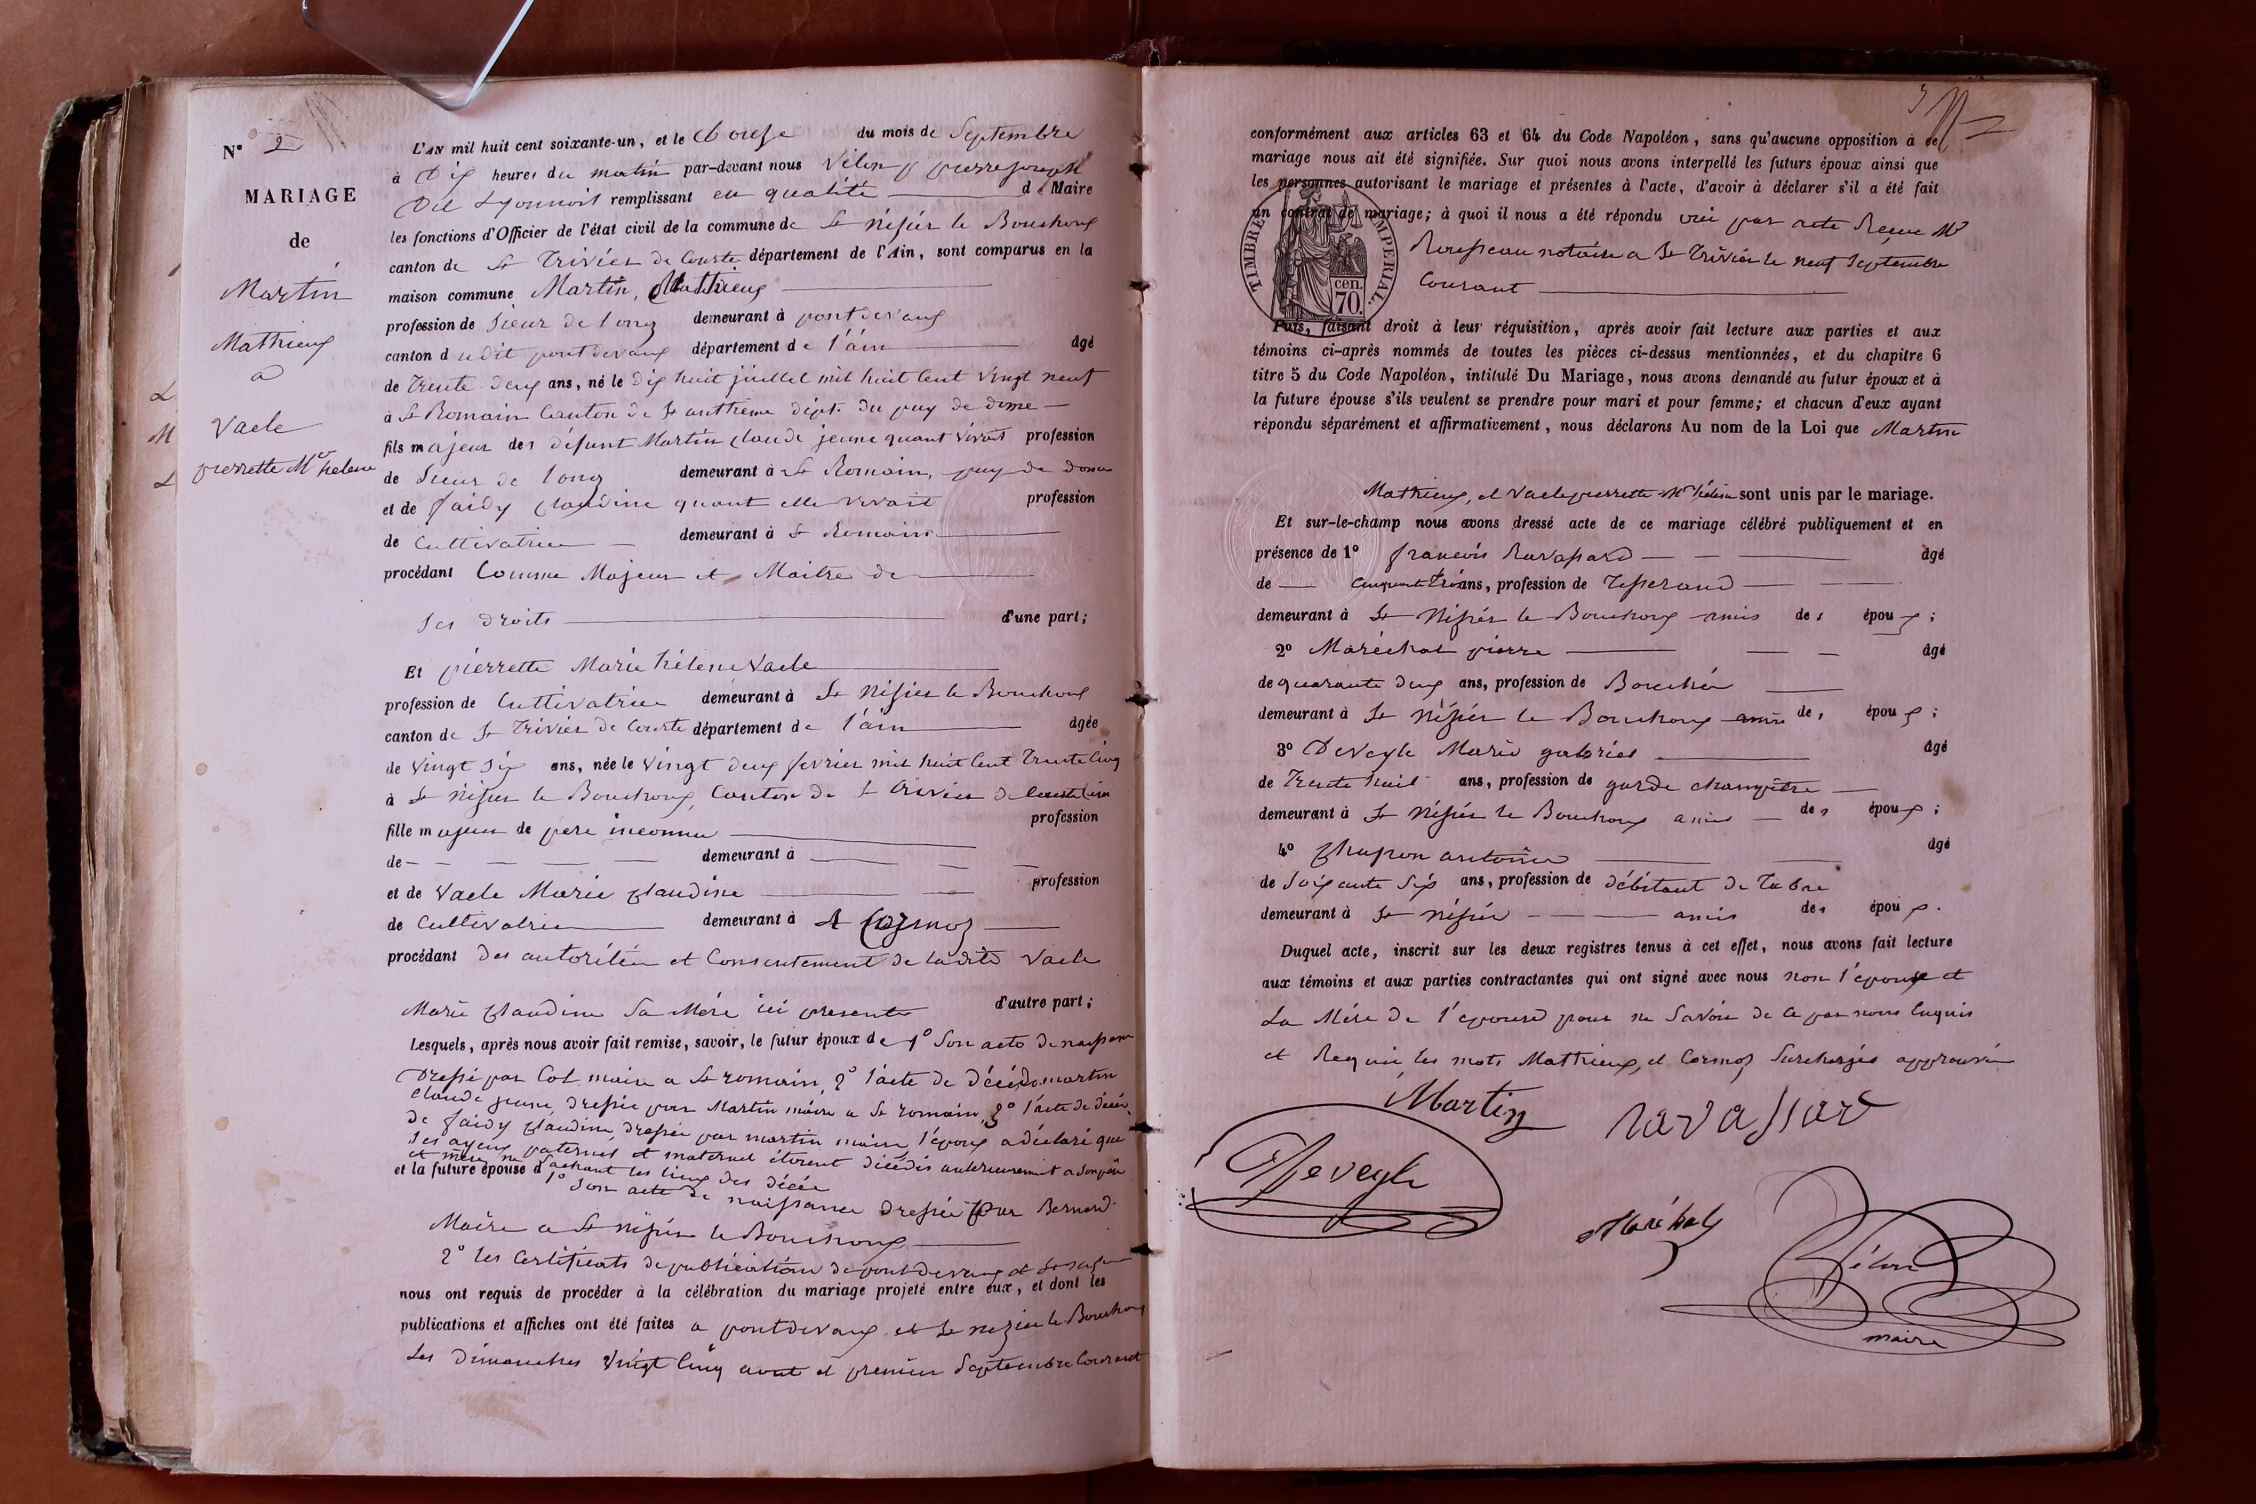 N° 2
MARIAGE
de
Martin
Mathieux
a
Vacle
pierrette Mie helene
L
M
L
L'AN mil huit cent soixante-un, et le Douze du mois de Septembre
à Dix heures du matin par-devant nous Vélon pierre joseph
remplissant en qualité de Maire
les fonctions d'Officier de l'état civil de la commune de St Nizier le Bouchoux
canton de St Trivier de Courte département de l'Ain, sont comparus en la
maison commune Martin, Matthieux
profession de Sieur de Long demeurant à pontdevaux
canton dudit pontdevaux département de l'ain âgé
de Trente deux ans, né le dix huit juillet mil huit Cent vingt neuf
à St Romain Canton de St anthème dépt. du puy de dome
fils majeur des défunt Martin claude jeune quant vivait profession
de Sieur de Long demeurant à St Romain, puy de dome
et de faidy claudine quant elle vivait profession
de Cultivatrice demeurant à St Romain
procédant Comme Majeur et Maitre de
Ses droits d'une part;
Et pierrette Marie hélene Vacle
profession de Cultivatrice demeurant à St Nizier le Bouchoux
canton de St Trivier de Courte département de l'ain âgée
de Vingt Six ans, née le Vingt deux fevrier mil huit Cent Trente Cinq
à St Nizier le Bouchoux, Canton de St Trivier de Courte
fille majeur de père inconnu profession
de demeurant à
et de Vacle Marie claudine profession
de Cultivatrice demeurant à Cormoz
procédant Des autorité et Consentement de ladite Vacle
Marie claudine Sa Mére ici presente d'autre part;
Lesquels, après nous avoir fait remise, savoir, le futur époux de 1° Son acte de naissance
Dressé par Col maire a St romain, 2° l'acte de décé de martin
claude jeune, dressée par Martin maire a St romain, 3° l'acte de décé
de faidy claudine, dressée par martin maire, l'époux a déclaré que
Ses ayeux paternel et maternel étoient décédés antérieurement a son père
et mère ne Sachant les lieux des décée
et la future épouse d 1° Son acte de naissance dressée par Bernard
Maire a St nizier le Bouchoux
2° les Certificats de publication de pontdevaux et St nizier
nous ont requis de procéder à la célébration du mariage projeté entre eux, et dont les
publications et affiches ont été faites a pontdevaux et St nizier le Bouchoux
Les Dimanches Vingt Cinq aout et premier Septembre Courant
conformément aux articles 63 et 64 du Code Napoléon, sans qu'aucune opposition à ce
mariage nous ait été signifiée. Sur quoi nous avons interpellé les futurs époux ainsi que
les personnes autorisant le mariage et présentes à l'acte, d'avoir à déclarer s'il a été fait
un contrat de mariage; à quoi il nous a été répondu oui par acte Reçue Me
Rousseau notaire a St Trivier le neuf Septembre
Courant
TIMBRE IMPERIAL.
cen.
70.
Puis, faisant droit à leur réquisition, après avoir fait lecture aux parties et aux
témoins ci-après nommés de toutes les pièces ci-dessus mentionnées, et du chapitre 6
titre 5 du Code Napoléon, intitulé Du Mariage, nous avons demandé au futur époux et à
la future épouse s'ils veulent se prendre pour mari et pour femme; et chacun d'eux ayant
répondu séparément et affirmativement, nous déclarons Au nom de la Loi que Martin
Mathieux, et Vacle pierrette Mie hélène sont unis par le mariage.
Et sur-le-champ nous avons dressé acte de ce mariage célébré publiquement et en
présence de 1° françois Ravassard âgé
de Cinquante trois ans, profession de Tisserand
demeurant à St Nizier le Bouchoux amis des époux;
2° Maréchal pierre âgé
de quarante deux ans, profession de Bouchér
demeurant à St Nizier le Bouchoux amis des époux;
3° Deveyle Marie gabriel âgé
de Trente huit ans, profession de garde champêtre
demeurant à St Nizier le Bouchoux amis des époux;
4° Chapon antoine âgé
de Soixante Six ans, profession de débitant de Tabac
demeurant à St Nizier amis des époux.
Duquel acte, inscrit sur les deux registres tenus à cet effet, nous avons fait lecture
aux témoins et aux parties contractantes qui ont signé avec nous non l'epouse et
La Mére de l'epouse pour ne Savoir de Ce par nous Enquis
et Requis, les mots Matthieux, et Cormoz Surchargés approuvé
Martin
ravassard
Deveyle
Maréchal
Vélon
maire